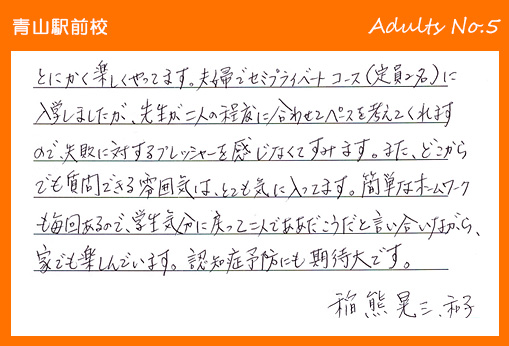 青山駅前校
Adults No.5
とにかく楽しくやってます。夫婦でセミプライベートコース(定員2名)に
入学しましたが、先生が二人の程度に合わせてペースを考えてくれます
ので、失敗に対するプレッシャーを感じなくてすみます。また、どこから
でも質問できる雰囲気は、とても気に入ってます。簡単なホームワーク
も毎回あるので、学生気分に戻って二人でああだこうだと言い合いながら、
家でも楽しんでいます。認知症予防にも期待大です。
稲熊晃三、和子